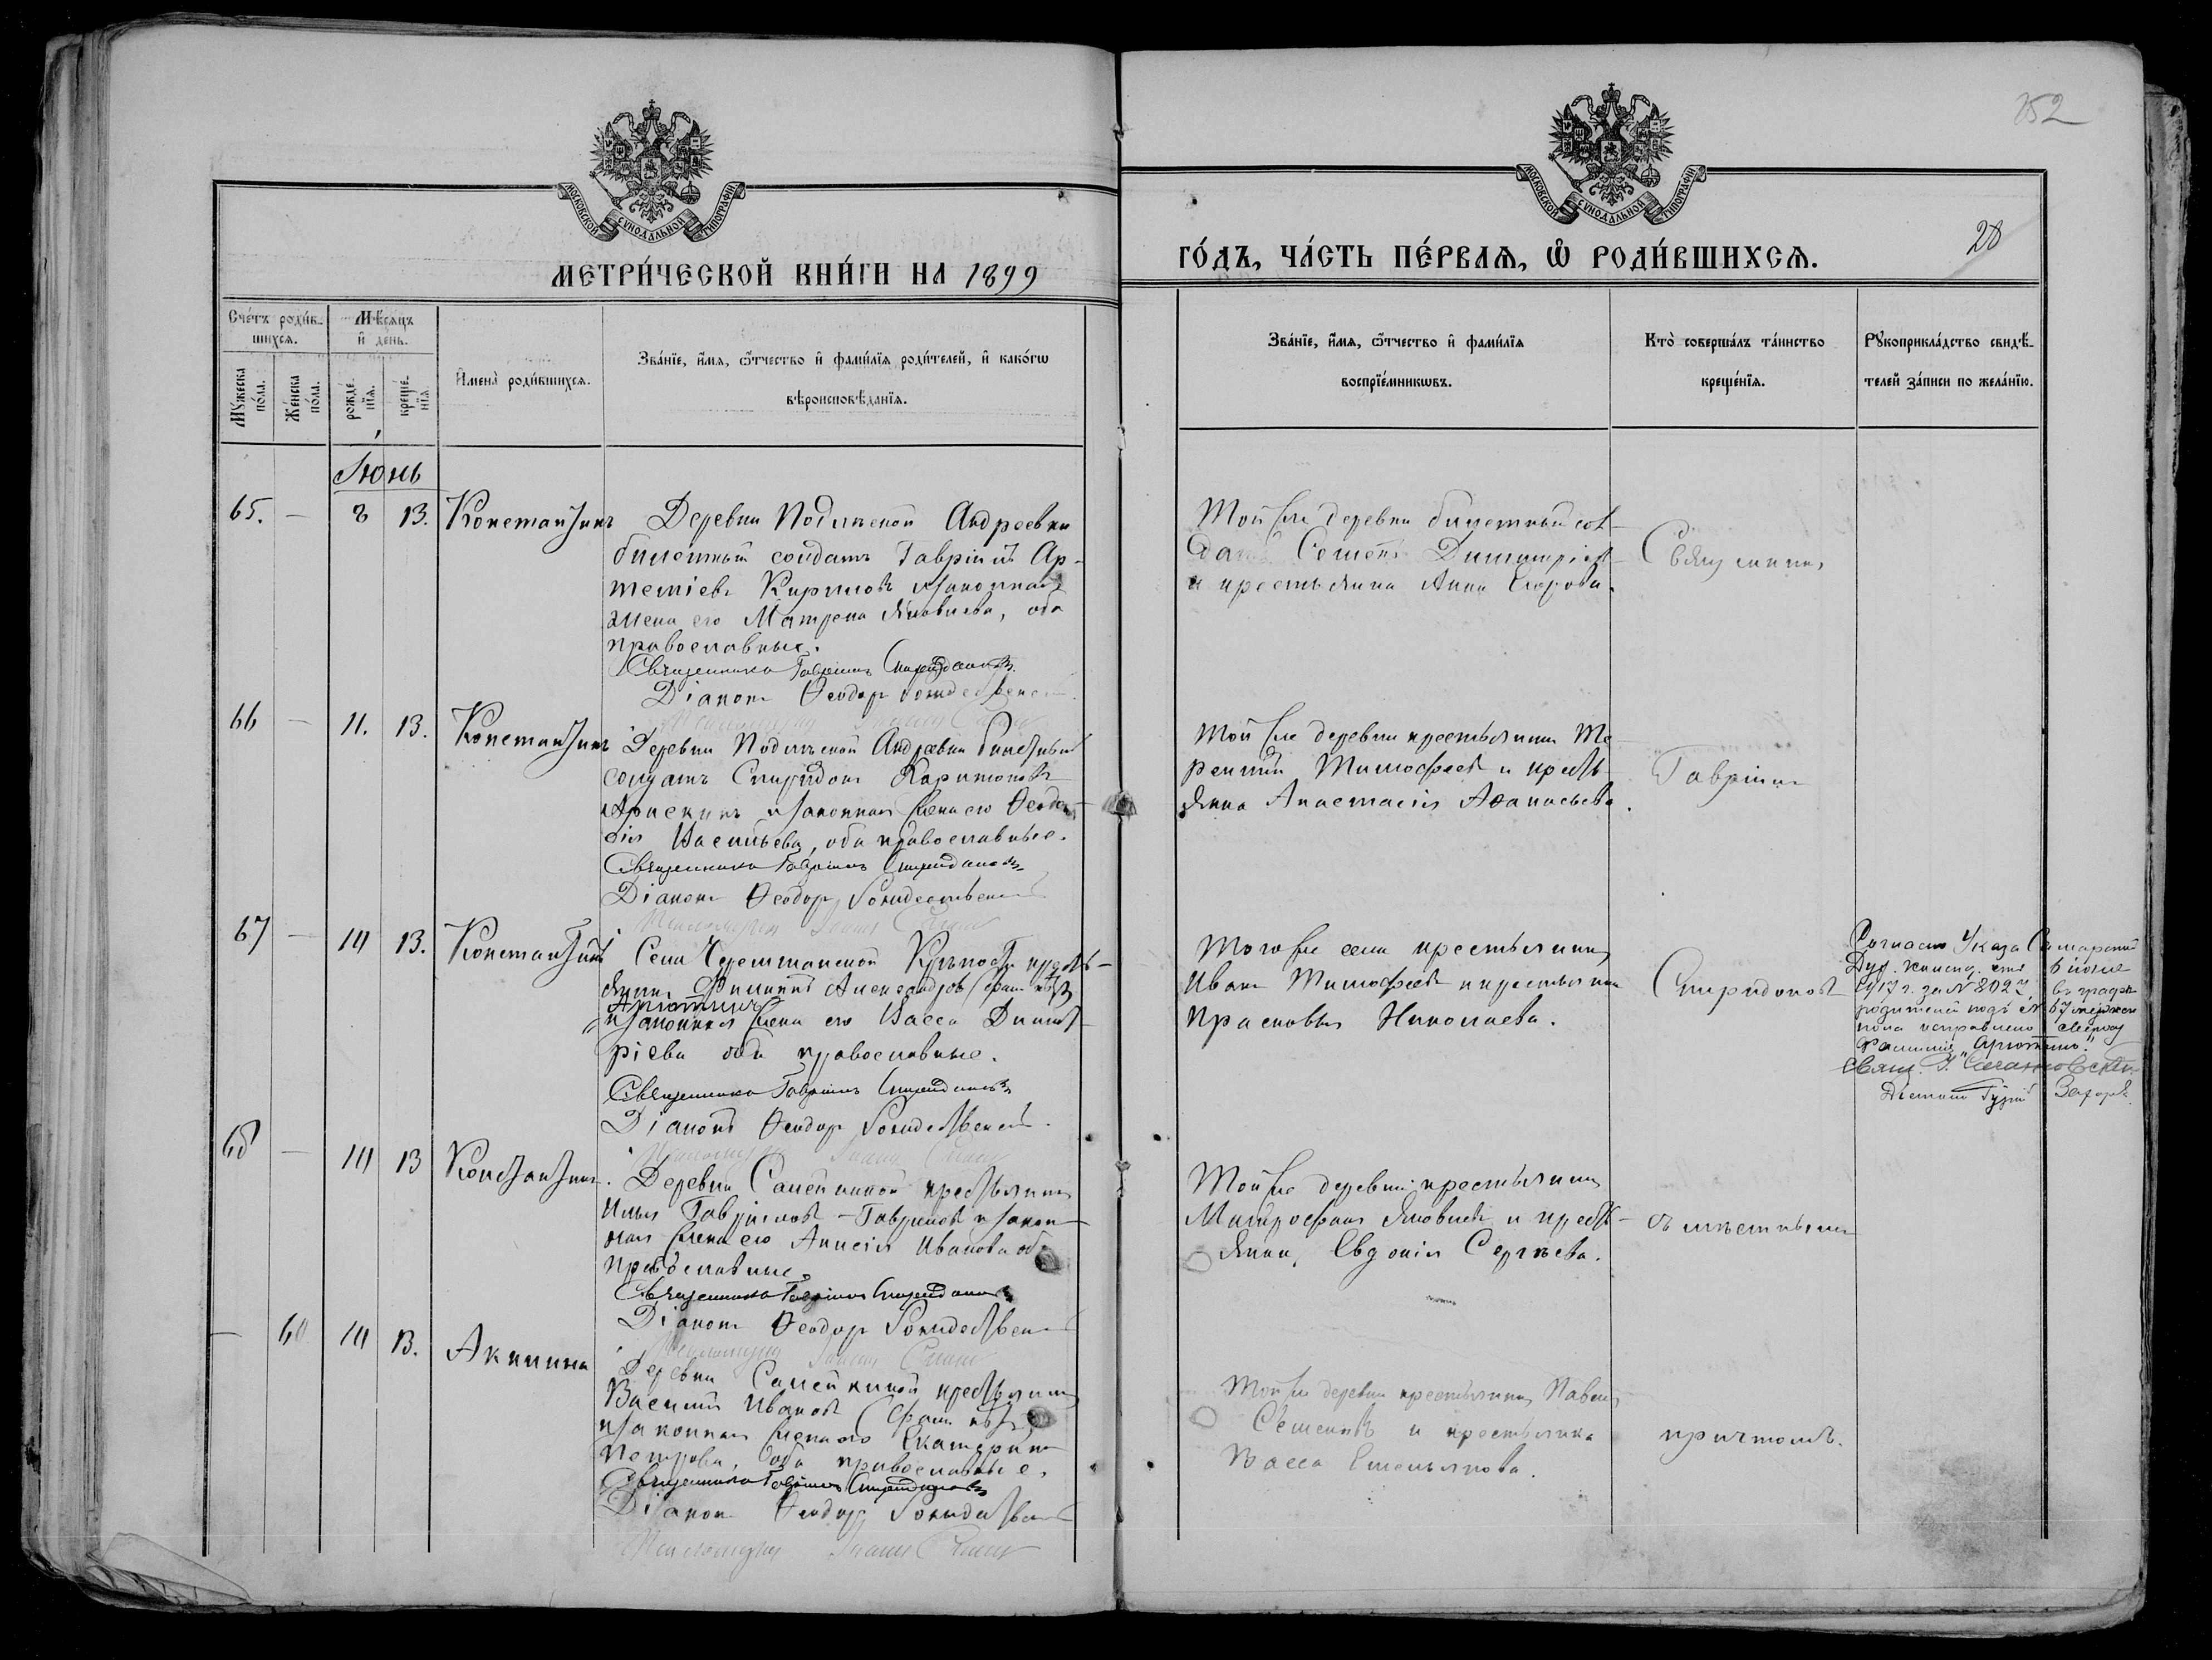 252
28
МОСКОВСКОЙ СѴНОДАЛЬНОЙ ТИПОГРАФІИ
МОСКОВСКОЙ СѴНОДАЛЬНОЙ ТИПОГРАФІИ
МЕТРИ́ЧЕСКОЙ КНИ́ГИ НА 1899
ГО́ДЪ, ЧА́СТЬ ПЕ́РВАѦ, Ѡ҆ РОДИ́ВШИХСѦ.
Сче́тъ роди́в-
шихсѧ.
Мѣ́сѧцъ
и҆ де́нь.
Мꙋ́жеска
по́ла.
Же́нска
по́ла.
рожде́-
нїѧ.
креще́-
нїѧ.
И҆мена̀ роди́вшихсѧ.
Зва́нїе, и҆́мѧ, ѻ҆́тчество и҆ фами́лїѧ роди́телей, и҆ како́гѡ
вѣроисповѣ́данїѧ.
Зва́нїе, и҆́мѧ, ѻ҆́тчество и҆ фами́лїѧ
воспрїе́мникѡвъ.
Кто̀ соверша́лъ та́инство
креще́нїѧ.
Рꙋкоприкла́дство свидѣ́-
телей за́писи по жела́нїю.
Іюнь
65. — 8 13. Константинъ
Деревни Подлѣсной Андреевки
билетный солдатъ Гавріилъ Ар-
теміевъ Кириловъ и законная
жена его Матрена Яковлева, оба
православные.
Священникъ Гавріилъ Спиридоновъ
Діаконъ Ѳеодоръ Рождественскій
Той же деревни билетный сол-
датъ Семенъ Димитріевъ
и крестьянка Анна Егорова.
Священникъ
66 — 11. 13. Константинъ
Деревни Подлѣсной Андреевки билетный
солдатъ Спиридонъ Харитоновъ
и законная жена его Ѳеодо-
сія Васильева, оба православные.
Священникъ Гавріилъ Спиридоновъ
Діаконъ Ѳеодоръ Рождественскій
Той же деревни крестьянинъ Те-
рентій Тимофеевъ и кресть-
янка Анастасія Аѳанасьева.
Гавріилъ
67 — 11 13. Константинъ
Села Черемшанской Крѣпости кресть-
янинъ Филиппъ Александровъ (фам. нѣтъ)
Арютинъ
и законная жена его Васса Димит-
ріева оба православные.
Священникъ Гавріилъ Спиридоновъ
Діаконъ Ѳеодоръ Рождественскій
Того же села крестьянинъ
Иванъ Тимофеевъ и крестьянка
Прасковья Николаева.
Спиридоновъ
Согласно Указа Самарской
Дух. Консист. отъ 6 іюля
1917 г. за № 8027, въ графѣ
родителей подъ № 67 мужеск.
пола исправлено сверху
фамилія "Арютинъ".
Свящ.
68 — 11 13 Константинъ
Деревни Самейкиной крестьянинъ
Илья Гавриловъ - Гавриловъ и закон-
ная жена его Анисія Иванова оба
православные.
Священникъ Гавріилъ Спиридоновъ
Діаконъ Ѳеодоръ Рождественскій
Той же деревни крестьянинъ
Митрофанъ Яковлевъ и кресть-
янка Евдокія Сергѣева.
съ мѣстнымъ
— 60 11 13. Акилина
Деревни Самейкиной крестьянинъ
Василій Ивановъ (фам. нѣтъ)
и законная жена его Екатерина
Петрова, оба православные.
Священникъ Гавріилъ Спиридоновъ
Діаконъ Ѳеодоръ Рождественскій
Той же деревни крестьянинъ Павелъ
Семеновъ и крестьянка
Васса Емельянова.
причтомъ.